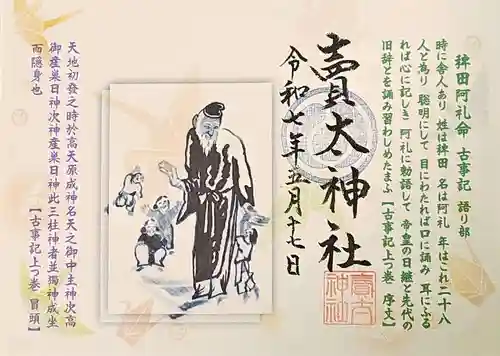 稗田阿礼命 古事記 語り部
時に舎人あり 姓は稗田 名は阿礼 年はこれ二十八
人と為り 聡明にして 目にわたれば口に誦み 耳にふる
れば心に記しき 阿礼に勅語して 帝皇の日継と先代の
旧辞とを誦み習わしめたまふ【古事記上つ巻 序文】
賣太神社
令和七年五月十七日
賣太
神社
天地初發之時於高天原成神名天之御中主神次高
御産巣日神次神産巣日神此三柱神者並獨神成坐
而隠身也
【古事記上つ巻 冒頭】